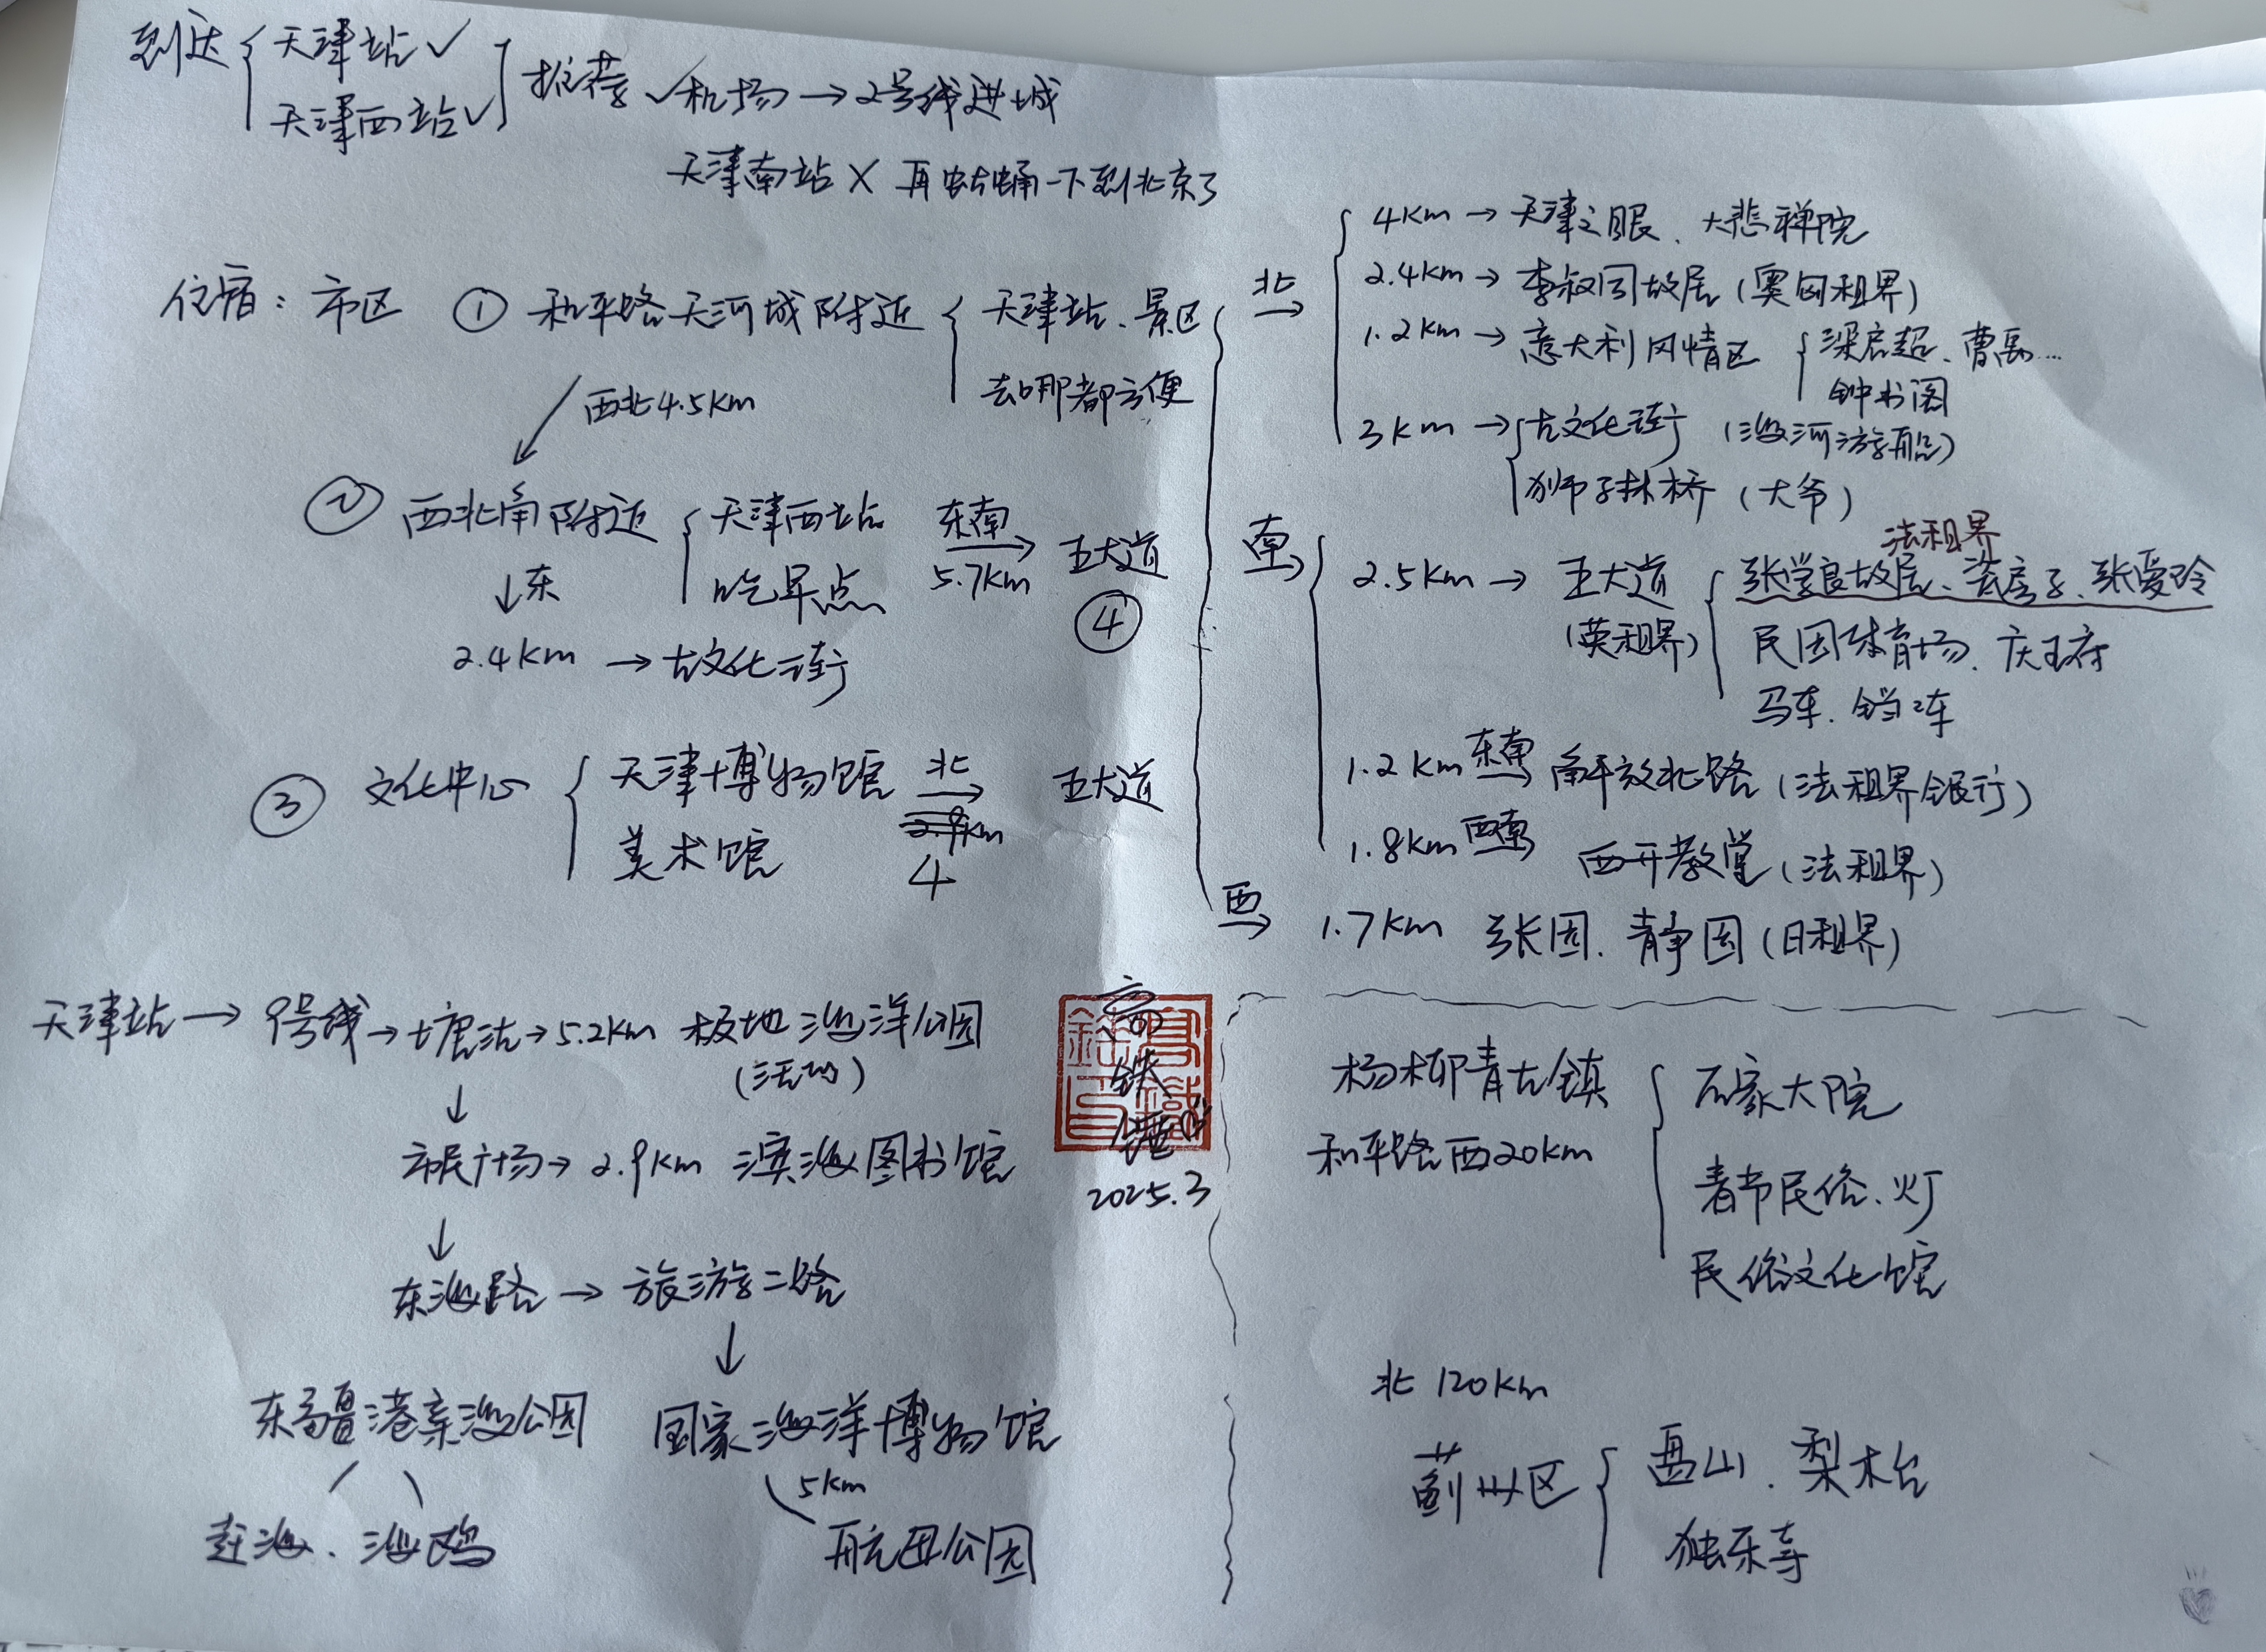 到达 { 天津站 ✓
天津西站 ✓ ] 推荐 ✓机场 → 2号线进城
天津南站 × 再蛄蛹一下到北京了
住宿: 市区 ① 和平路天河城附近 { 天津站、景区
去哪都方便
西北4.5km
② 西北角附近 { 天津西站
吃早点
东南 → 5.7km 五大道
④
↓东
2.4km → 古文化街
③ 文化中心 { 天津博物馆
美术馆
北 → 五大道
2.9km
4
北 → { 4km → 天津之眼、大悲禅院
2.4km → 李叔同故居 (奥匈租界)
1.2km → 意大利风情区 { 梁启超、曹禺...
钟书阁
3km → { 古文化街 (海河游船)
狮子林桥 (大爷)
南 → { 2.5km → 五大道 (英租界) {
法租界
张学良故居、瓷房子、张爱玲
民园体育场、庆王府
马车、铛铛车
1.2km 东南 → 解放北路 (法租界银行)
1.8km 西南 → 西开教堂 (法租界)
西 → 1.7km 张园、静园 (日租界)
天津站 → 9号线 → 塘沽 → 5.2km 极地海洋公园
(活的)
↓
市民广场 → 2.9km 滨海图书馆
↓
东海路 → 旅游二路
↓
东疆港亲海公园 国家海洋博物馆
赶海、海鸥
5km
航母公园
2025.3
杨柳青古镇 { 石家大院
和平路西20km
春节民俗、灯
民俗文化馆
北 120km
蓟州区 { 盘山、梨木台
独乐寺